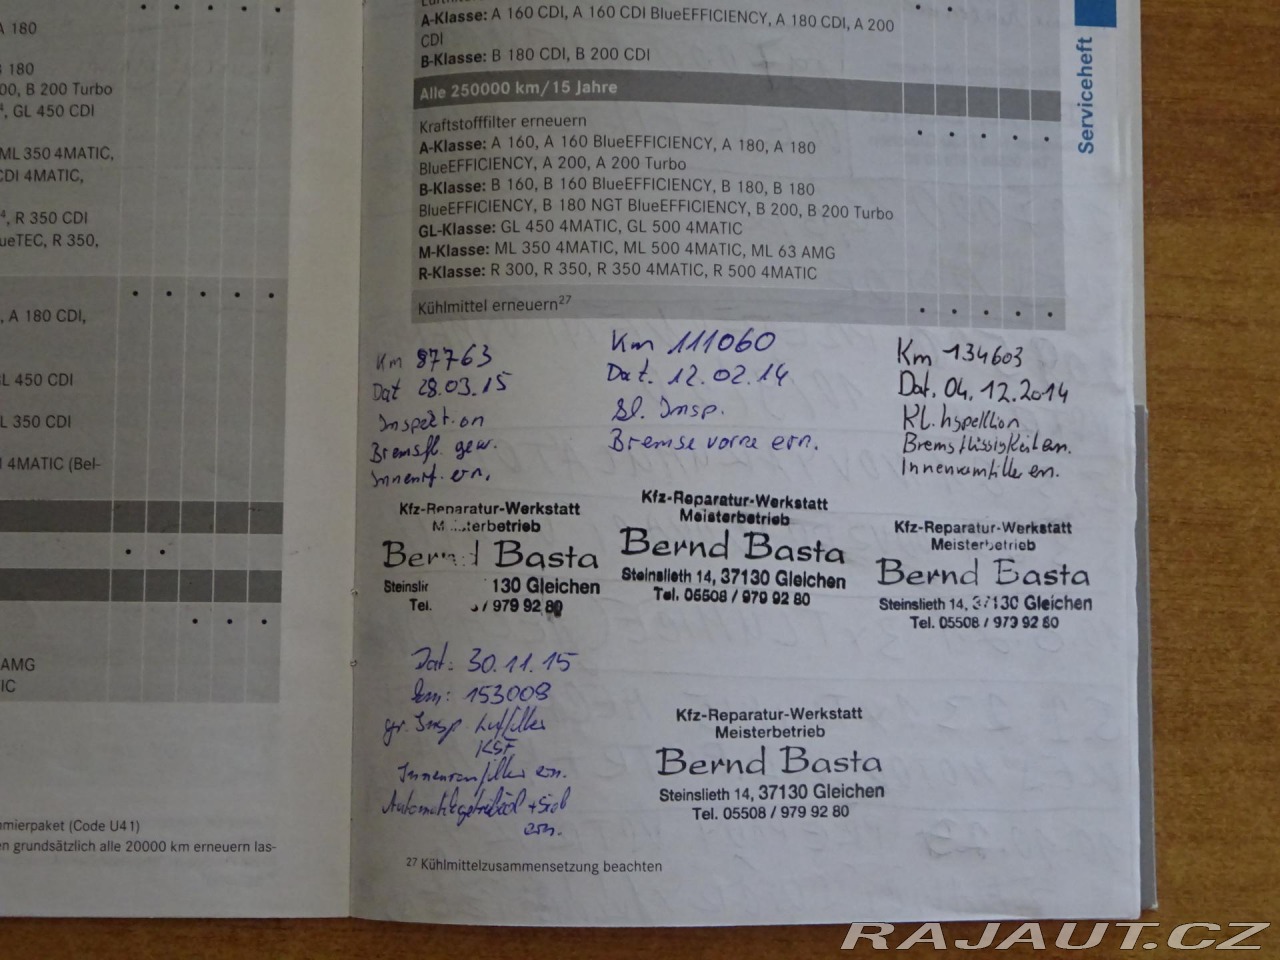 A 180
B 180
00, B 200 Turbo
⁴, GL 450 CDI
ML 350 4MATIC,
CDI 4MATIC,
⁴, R 350 CDI
ueTEC, R 350,
, A 180 CDI,
GL 450 CDI
L 350 CDI
4MATIC (Bel-
AMG
IC
mierpaket (Code U41)
en grundsätzlich alle 20000 km erneuern las-
A-Klasse: A 160 CDI, A 160 CDI BlueEFFICIENCY, A 180 CDI, A 200
CDI
B-Klasse: B 180 CDI, B 200 CDI
Alle 250000 km/15 Jahre
Kraftstofffilter erneuern
A-Klasse: A 160, A 160 BlueEFFICIENCY, A 180, A 180
BlueEFFICIENCY, A 200, A 200 Turbo
B-Klasse: B 160, B 160 BlueEFFICIENCY, B 180, B 180
BlueEFFICIENCY, B 180 NGT BlueEFFICIENCY, B 200, B 200 Turbo
GL-Klasse: GL 450 4MATIC, GL 500 4MATIC
M-Klasse: ML 350 4MATIC, ML 500 4MATIC, ML 63 AMG
R-Klasse: R 300, R 350, R 350 4MATIC, R 500 4MATIC
Kühlmittel erneuern²⁷
Serviceheft
Km 87763
Dat 28.03.15
Inspektion
Bremsfl. gew.
Innenrf. ern.
Kfz-Reparatur-Werkstatt
Meisterbetrieb
Bernd Basta
Steinslir 130 Gleichen
Tel. / 979 92 80
Km 111060
Dat. 12.02.14
Insp.
Bremse vorne ern.
Kfz-Reparatur-Werkstatt
Meisterbetrieb
Bernd Basta
Steinslieth 14, 37130 Gleichen
Tel. 05508 / 979 92 80
Km 134603
Dat. 04.12.2014
Kl. Inspektion
Bremsflüssigkeit ern.
Innenraumfilter ern.
Kfz-Reparatur-Werkstatt
Meisterbetrieb
Bernd Basta
Steinslieth 14, 37130 Gleichen
Tel. 05508 / 979 92 80
Dat: 30.11.15
km: 153008
gr. Insp Luftfilter
KSF
Innenraumfilter ern.
Automatikgetriebeöl + Sieb
ern.
Kfz-Reparatur-Werkstatt
Meisterbetrieb
Bernd Basta
Steinslieth 14, 37130 Gleichen
Tel. 05508 / 979 92 80
²⁷ Kühlmittelzusammensetzung beachten
RAJAUT.CZ